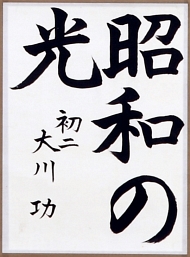 昭和の
光
初二
大川功